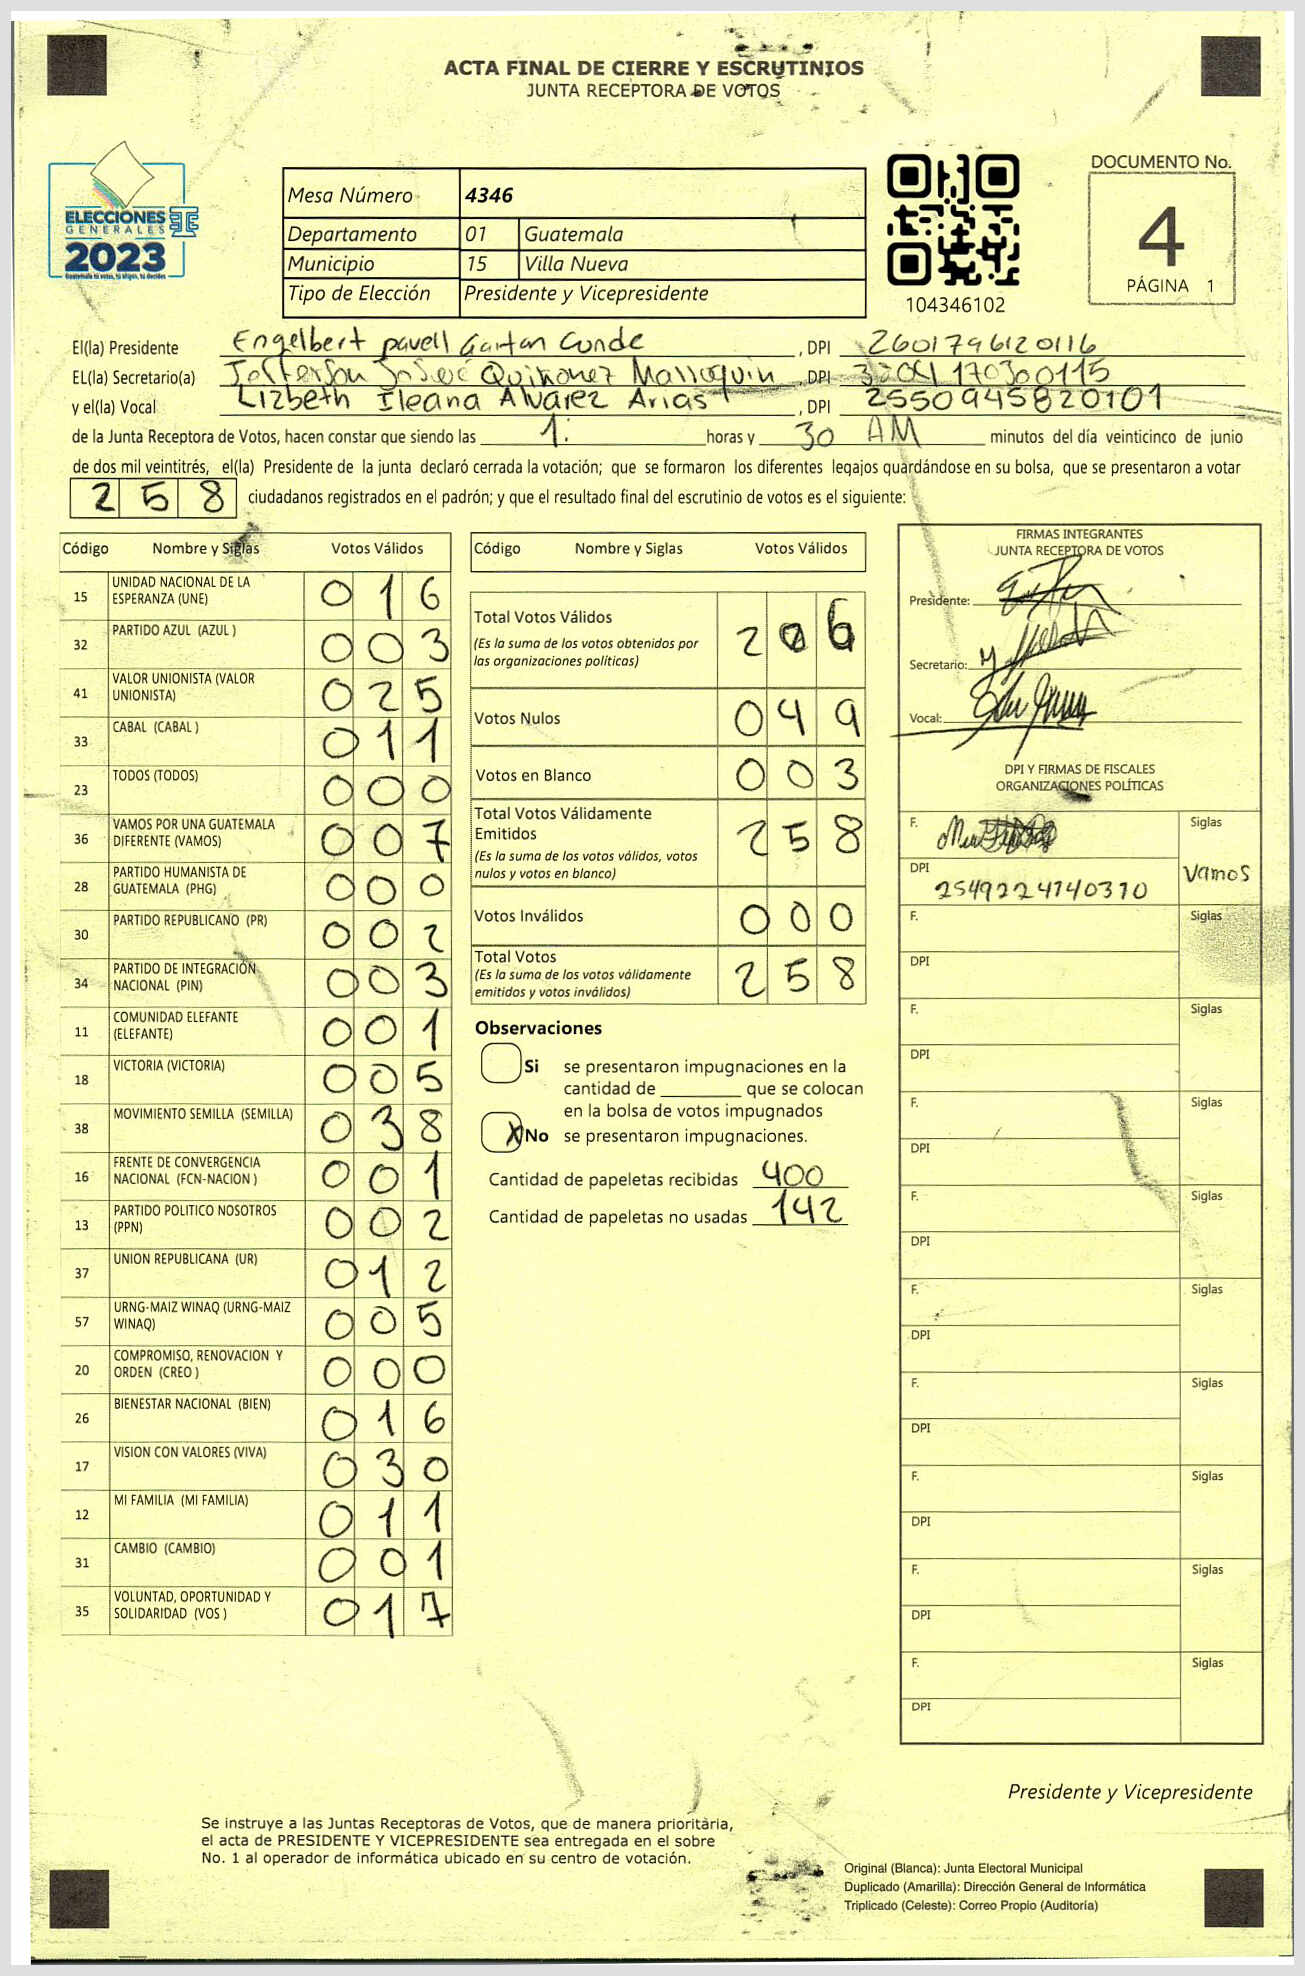 ACTA FINAL DE CIERRE Y ESCRUTINIOS
JUNTA RECEPTORA DE VOTOS
ELECCIONES
GENERALES
2023
Guatemala tú votas, tú eliges, tú decides
Mesa Número 4346
Departamento 01 Guatemala
Municipio 15 Villa Nueva
Tipo de Elección Presidente y Vicepresidente
104346102
DOCUMENTO No.
4
PÁGINA 1
El(la) Presidente Engelbert pavell Gaitan Conde , DPI 2601796120116
EL(la) Secretario(a) Jefferson Quiñonez Marroquin , DPI
y el(la) Vocal Lizbeth Ileana Alvarez Arias , DPI 2550945820101
de la Junta Receptora de Votos, hacen constar que siendo las 1: horas y 30 AM minutos del día veinticinco de junio
de dos mil veintitrés, el(la) Presidente de la junta declaró cerrada la votación; que se formaron los diferentes legajos quardándose en su bolsa, que se presentaron a votar
258 ciudadanos registrados en el padrón; y que el resultado final del escrutinio de votos es el siguiente:
Código Nombre y Siglas Votos Válidos
15 UNIDAD NACIONAL DE LA
ESPERANZA (UNE) 016
32 PARTIDO AZUL (AZUL ) 003
41 VALOR UNIONISTA (VALOR
UNIONISTA) 025
33 CABAL (CABAL ) 011
23 TODOS (TODOS) 000
36 VAMOS POR UNA GUATEMALA
DIFERENTE (VAMOS) 007
28 PARTIDO HUMANISTA DE
GUATEMALA (PHG) 000
30 PARTIDO REPUBLICANO (PR) 002
34 PARTIDO DE INTEGRACIÓN
NACIONAL (PIN) 003
11 COMUNIDAD ELEFANTE
(ELEFANTE) 001
18 VICTORIA (VICTORIA) 005
38 MOVIMIENTO SEMILLA (SEMILLA) 038
16 FRENTE DE CONVERGENCIA
NACIONAL (FCN-NACION ) 001
13 PARTIDO POLITICO NOSOTROS
(PPN) 002
37 UNION REPUBLICANA (UR) 012
57 URNG-MAIZ WINAQ (URNG-MAIZ
WINAQ) 005
20 COMPROMISO, RENOVACION Y
ORDEN (CREO ) 000
26 BIENESTAR NACIONAL (BIEN) 016
17 VISION CON VALORES (VIVA) 030
12 MI FAMILIA (MI FAMILIA) 011
31 CAMBIO (CAMBIO) 001
35 VOLUNTAD, OPORTUNIDAD Y
SOLIDARIDAD (VOS ) 017
Código Nombre y Siglas Votos Válidos
Total Votos Válidos 206
(Es la suma de los votos obtenidos por
las organizaciones políticas)
Votos Nulos 049
Votos en Blanco 003
Total Votos Válidamente
Emitidos 258
(Es la suma de los votos válidos, votos
nulos y votos en blanco)
Votos Inválidos 000
Total Votos 258
(Es la suma de los votos válidamente
emitidos y votos inválidos)
Observaciones
Si se presentaron impugnaciones en la
cantidad de ________ que se colocan
en la bolsa de votos impugnados
X No se presentaron impugnaciones.
Cantidad de papeletas recibidas 400
Cantidad de papeletas no usadas 142
FIRMAS INTEGRANTES
JUNTA RECEPTORA DE VOTOS
Presidente:
Secretario:
Vocal:
DPI Y FIRMAS DE FISCALES
ORGANIZACIONES POLÍTICAS
F. Siglas
DPI 2549224740310 Vamos
F. Siglas
DPI
F. Siglas
DPI
F. Siglas
DPI
F. Siglas
DPI
F. Siglas
DPI
F. Siglas
DPI
F. Siglas
DPI
F. Siglas
DPI
F. Siglas
DPI
Presidente y Vicepresidente
Se instruye a las Juntas Receptoras de Votos, que de manera prioritària,
el acta de PRESIDENTE Y VICEPRESIDENTE sea entregada en el sobre
No. 1 al operador de informática ubicado en su centro de votación.
Original (Blanca): Junta Electoral Municipal
Duplicado (Amarilla): Dirección General de Informática
Triplicado (Celeste): Correo Propio (Auditoría)